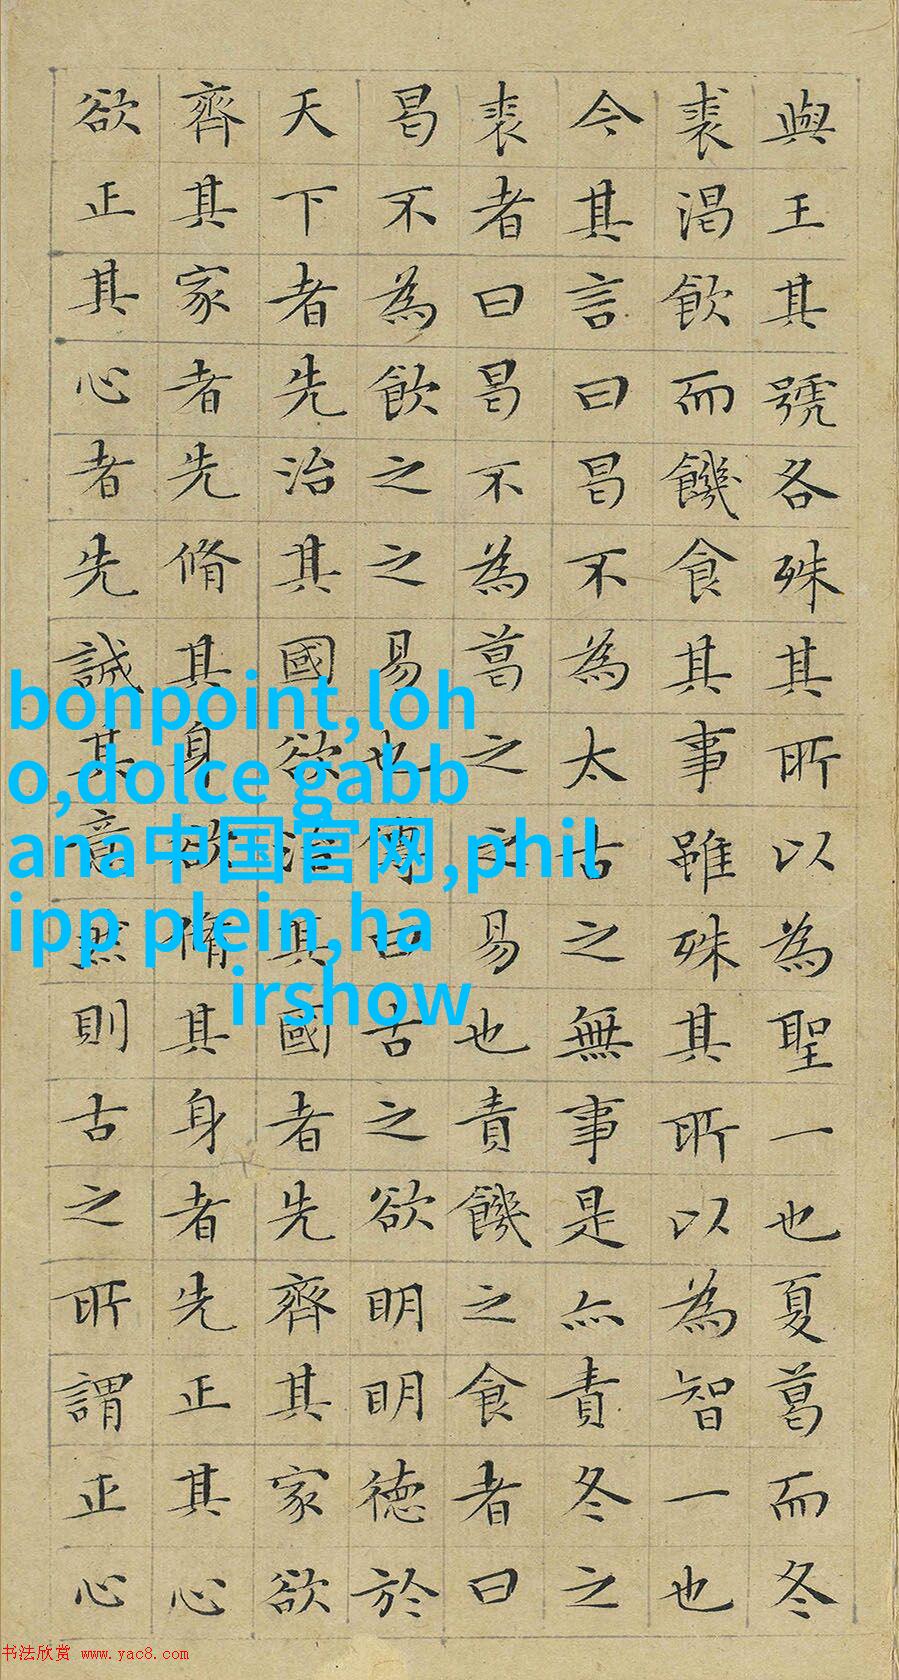 與王其號各殊其所以為聖一也夏葛而冬
裘渴飲而饑食其事雖殊其所以為智一也
今其言曰曷不為太古之無事是亦責冬之
裘者曰曷不為葛之之易也責饑之食者曰
曷不為飲之之易也傳曰古之欲明明德於
天下者先治其國欲治其國者先齊其家欲
齊其家者先脩其身欲脩其身者先正其心
欲正其心者先誠其意然則古之所謂正心
bonpoint,loh
o,dolce gabb
ana中国官网,phil
ipp plein,ha
irshow
书法欣赏 www.yac8.com